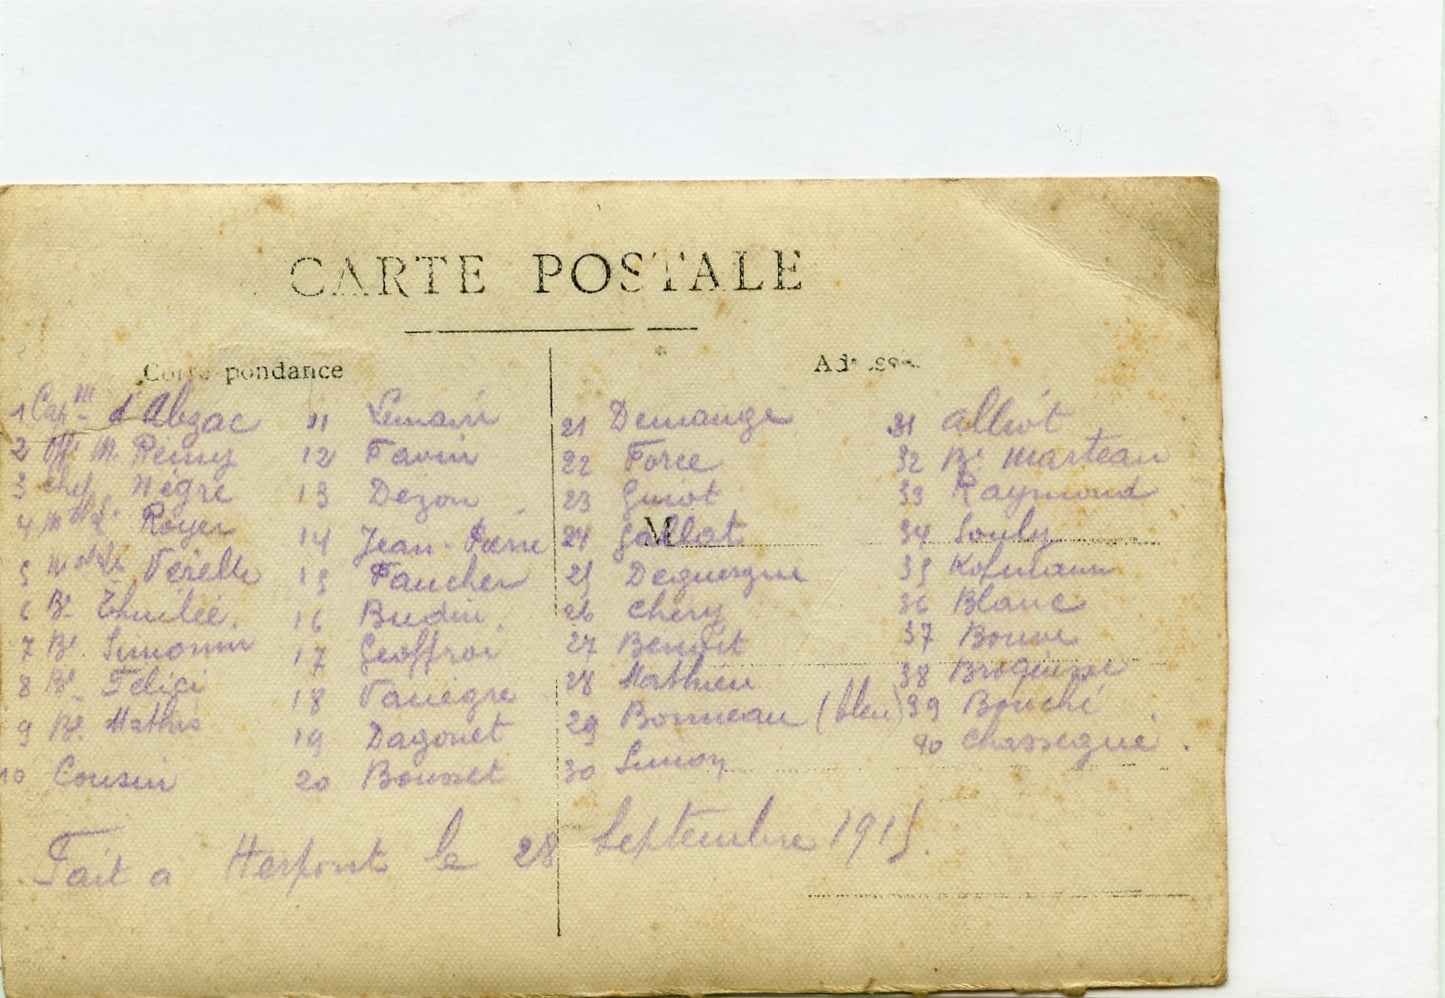 CARTE POSTALE
Correspondance
Adresse
1 Capne d'Abzac
2 M. Rémy
3 chef Nègre
4 Mal L. Royer
5 Mal Ls Vérelle
6 Br Thuilié.
7 Br. Simonin
8 Br Félici
9 Br. Mathis
10 Cousin
11 Lemaire
12 Favin
13 Dezon
14 Jean-Pierre
15 Faucher
16 Budin.
17 Geoffroi
18 Vanègre
19 Dagonet
20 Bousset
21 Demange
22 Force
23 Guiot
24 Gallat
M
25 Deguergue
26 Chéry
27 Benoît
28 Mathieu
29 Bonneau (bleu)
30 Simon
31 Alliot
32 Br Marteau
33 Raymond
34 Souly
35 Kofmann
36 Blanc
37 Bourve
38
39 Bouché
40 Chassegué.
Fait a Herpont le 28 Septembre 1915.